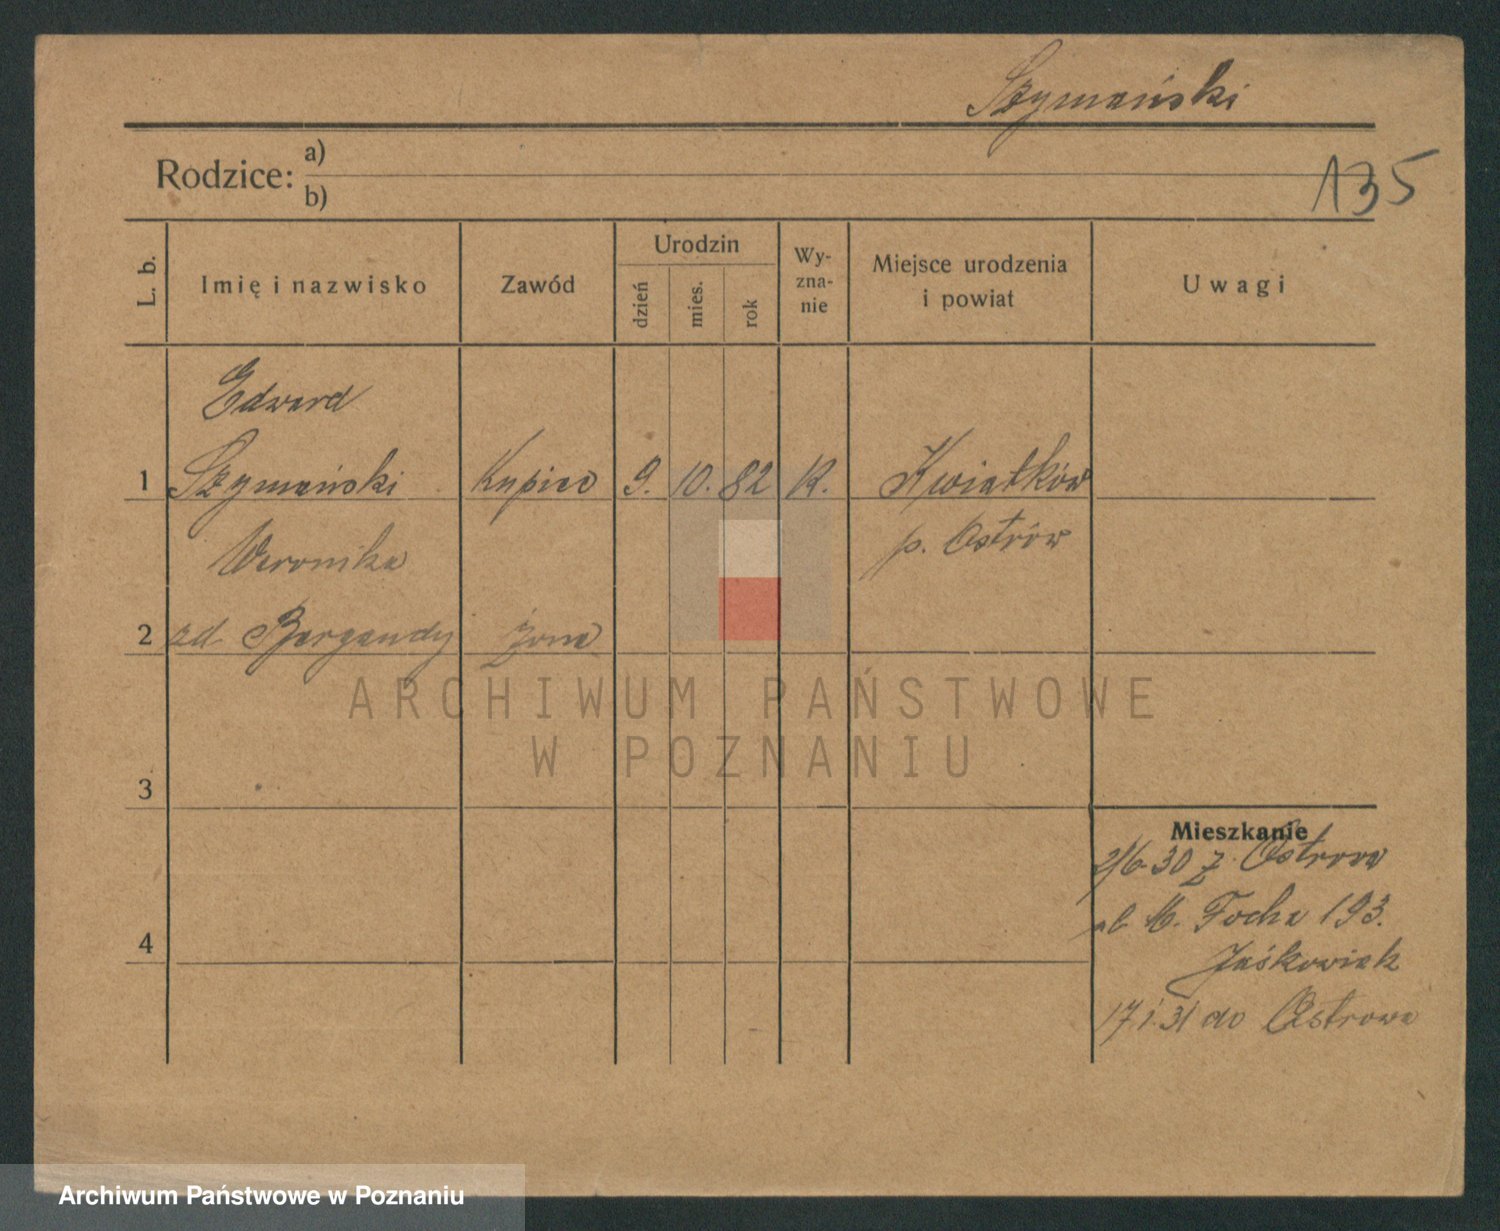 Szymański
Rodzice: a)
b)
135
L. b.
Imię i nazwisko
Zawód
Urodzin
dzień
mies.
rok
Wy-
zna-
nie
Miejsce urodzenia
i powiat
Uwagi
Edward
1 Szymański Kupiec 9. 10. 82 R. Kwiatków
Weronika p. Ostrów
2 zd. Bergandy żona
ARCHIWUM PAŃSTWOWE
W POZNANIU
3
Mieszkanie
2/6 30 z Ostrowa
ul. M. Focha 193.
4
Jaśkowiak
17.1.31 do Ostrowa
Archiwum Państwowe w Poznaniu